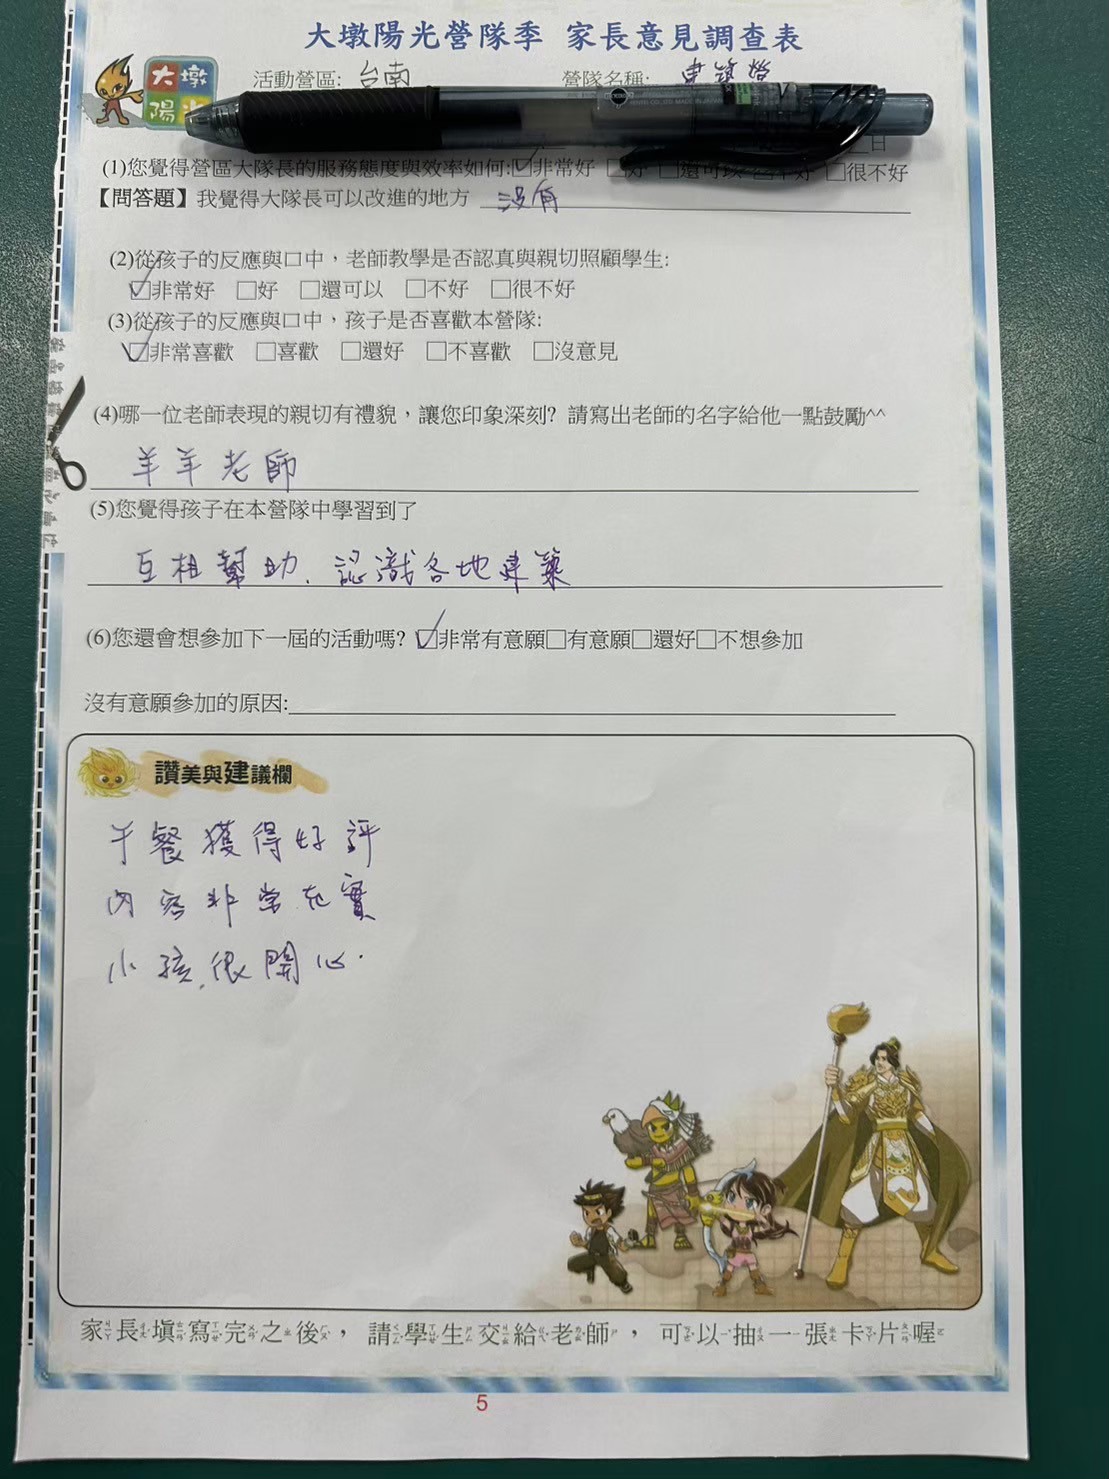 大墩陽光營隊季 家長意見調查表
大墩
陽光
活動營區: 台南 營隊名稱: 建築營
日
(1)您覺得營區大隊長的服務態度與效率如何:☑非常好 □好 □還可以 □不好 □很不好
【問答題】我覺得大隊長可以改進的地方 沒有
(2)從孩子的反應與口中，老師教學是否認真與親切照顧學生:
☑非常好 □好 □還可以 □不好 □很不好
(3)從孩子的反應與口中，孩子是否喜歡本營隊:
☑非常喜歡 □喜歡 □還好 □不喜歡 □沒意見
(4)哪一位老師表現的親切有禮貌，讓您印象深刻? 請寫出老師的名字給他一點鼓勵^^
羊羊老師
(5)您覺得孩子在本營隊中學習到了
互相幫助、認識各地建築
(6)您還會想參加下一屆的活動嗎? ☑非常有意願□有意願□還好□不想參加
沒有意願參加的原因:
讚美與建議欄
午餐獲得好評
內容非常充實
小孩很開心.
家長填寫完之後，請學生交給老師，可以抽一張卡片喔
5